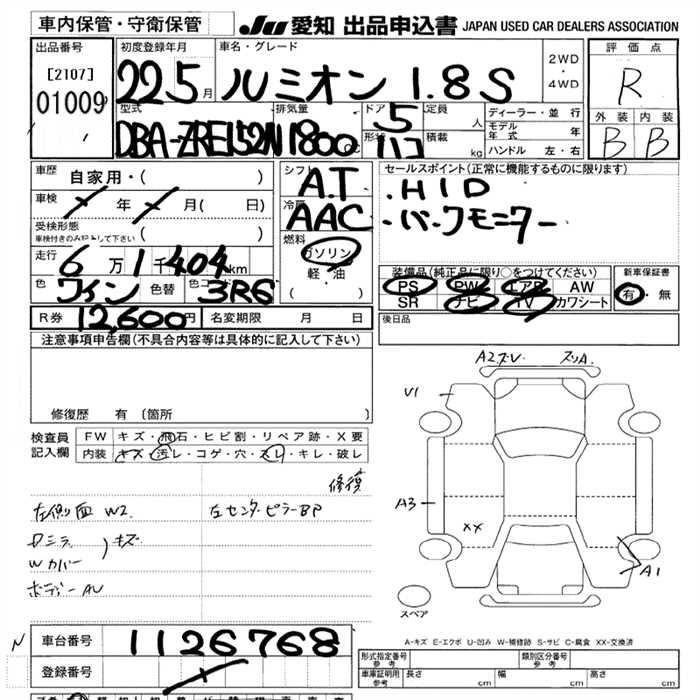 車内保管・守衛保管
JU 愛知 出品申込書 JAPAN USED CAR DEALERS ASSOCIATION
出品番号 [2107] 01009
初度登録年月 22 5月
車名・グレード ルミオン 1.8S
2WD・4WD
評価点 R
外装 内装 B B
型式 DBA-ZRE152N
排気量 1800cc
ドア 5 形状
定員 人
積載 kg
ディーラー・並行
モデル年式 年
ハンドル 左・右
車歴 自家用・( )
車検 年 月( 日)
受検形態 車検付きのみ記入して下さい ( )
走行 6万1千404km
色 ワイン 色替 色コード 3R6
シフト A.T
冷房 AAC
燃料 ガソリン 軽・油 ( )
セールスポイント(正常に機能するものに限ります)
・HID
・バックモニター
装備品(純正品に限り○をつけてください)
PS PW エアB AW
SR ナビ TV カワシート
新車保証書 有・無
R券 12,600円 名変期限 月 日
後日品
注意事項申告欄(不具合内容等は具体的に記入して下さい)
修復歴 有〔箇所
検査員記入欄
FW キズ・飛石・ヒビ割・リペア跡・X要
内装 キズ・汚レ・コゲ・穴・スレ・キレ・破レ
修復
左側面 W2 左センターピラーBP
キズ
Wカバー
ボデーAU
A2ズレ ズリA.
V1
A3
XX
A1
スペア
A-キズ E-エクボ U-凹み W-補修跡 S-サビ C-腐食 XX-交換済
N 車台番号 1126768
登録番号
形式指定番号 参考
類別区分番号 参考
車庫証明用 参考 長さ cm 幅 cm 高さ cm